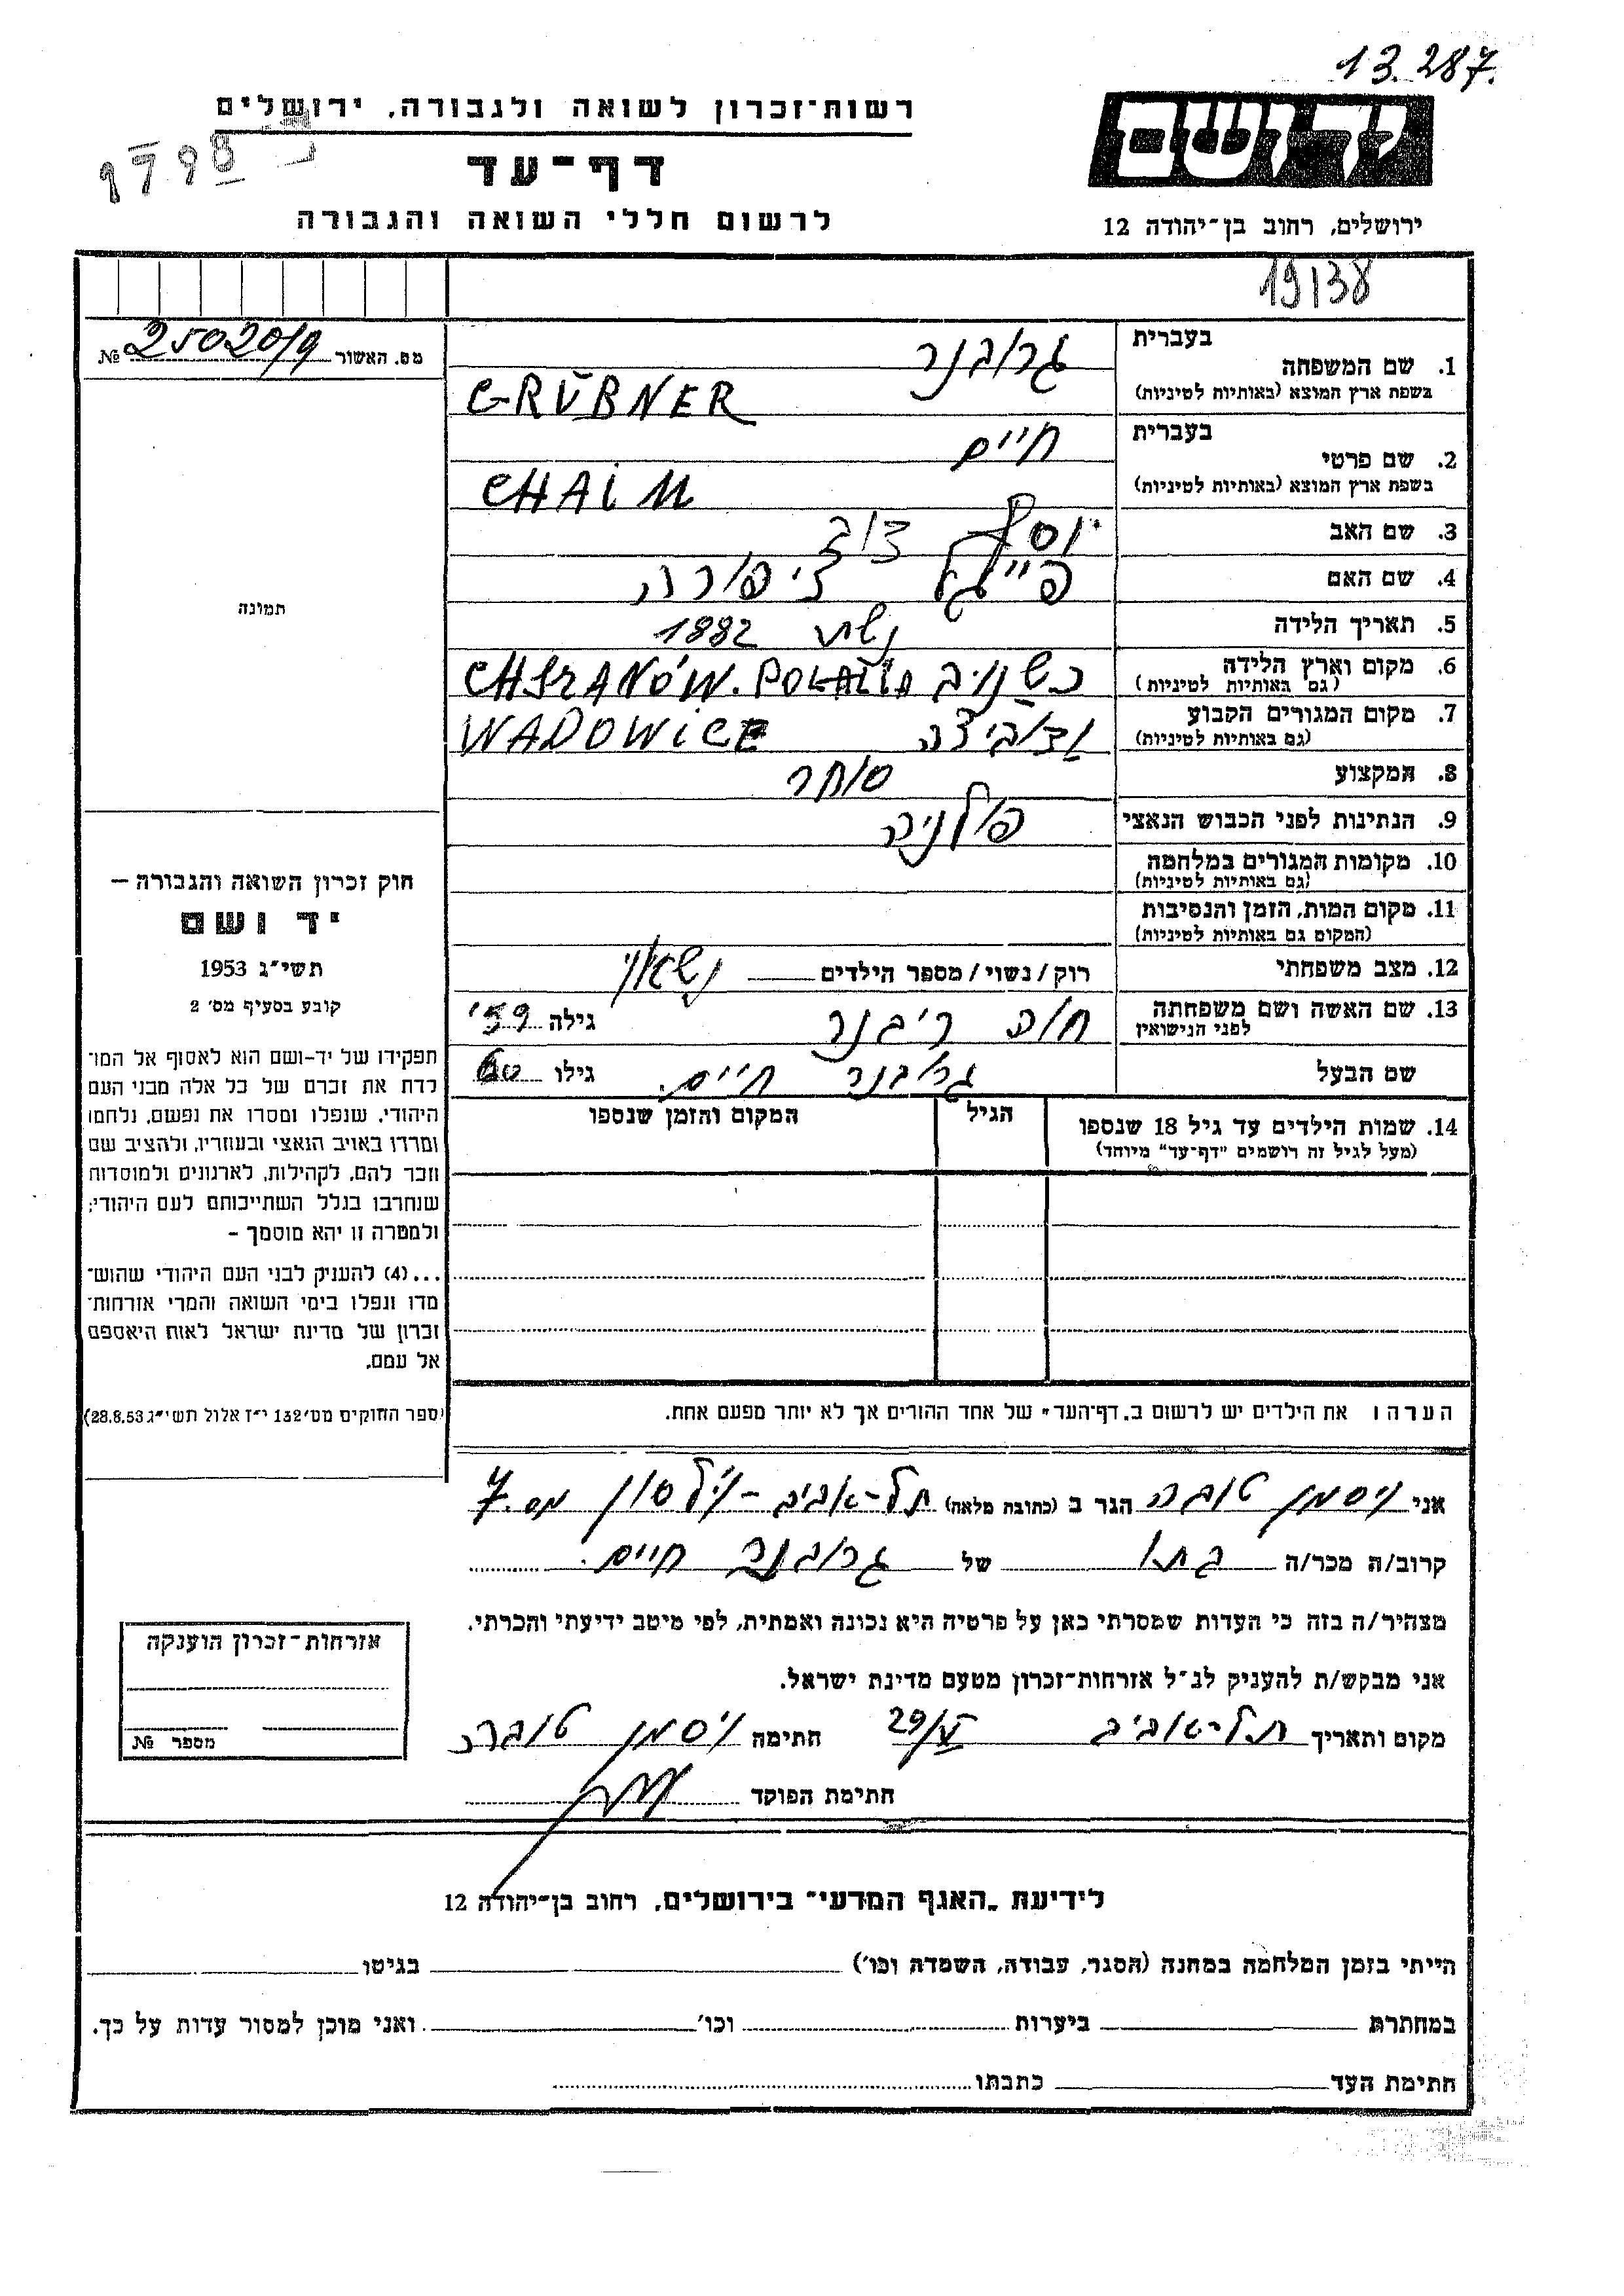 13.287.
ידושם
רשות־זכרון לשואה ולגבורה. ירושלים
דף־עד
לרשום חללי השואה והגבורה
ירושלים, רחוב בן־יהודה 12
19138
מס. האשור № 25020/9
בעברית גרובנר
1. שם המשפחה
בשפת ארץ המוצא (באותיות לטיניות) GRÜBNER
בעברית חיים
2. שם פרטי
בשפת ארץ המוצא (באותיות לטיניות) CHAIM
3. שם האב יוסף דוב
4. שם האם פייגל ציפורה
5. תאריך הלידה שנת 1882
6. מקום וארץ הלידה
(גם באותיות לטיניות) CHSRANÓW.
7. מקום המגורים הקבוע
(גם באותיות לטיניות) ודוביצה WADOWICE
8. המקצוע סוחר
9. הנתינות לפני הכבוש הנאצי פולניה
10. מקומות המגורים במלחמה
(גם באותיות לטיניות)
11. מקום המות, הזמן והנסיבות
(המקום גם באותיות לטיניות)
12. מצב משפחתי רוק/נשוי/מספר הילדים נשואי
13. שם האשה ושם משפחתה
לפני הנישואין חוה ריבנר גילה 59
שם הבעל גרובנר חיים. גילו 60
14. שמות הילדים עד גיל 18 שנספו
(מעל לגיל זה רושמים "דף־עד" מיוחד)
הגיל
המקום והזמן שנספו
תמונה
חוק זכרון השואה והגבורה –
יד ושם
תשי"ג 1953
קובע בסעיף מס' 2
תפקידו של יד-ושם הוא לאסוף אל המו־
לדת את זכרם של כל אלה מבני העם
היהודי, שנפלו ומסרו את נפשם, נלחמו
ומרדו באויב הנאצי ובעוזריו, ולהציב שם
וזכר להם, לקהילות, לארגונים ולמוסדות
שנחרבו בגלל השתייכותם לעם היהודי;
ולמטרה זו יהא מוסמך –
...(4) להעניק לבני העם היהודי שהוש־
מדו ונפלו בימי השואה והמרי אזרחות־
זכרון של מדינת ישראל לאות היאספם
אל עמם.
(ספר החוקים מס' 132 י"ז אלול תשי"ג 28.8.53)
הערה ו את הילדים יש לרשום ב„דף־העד" של אחד ההורים אך לא יותר מפעם אחת.
אני ויסמן טובה הגר ב (כתובת מלאה) תל-אביב - וילסון מס. 7
קרוב/ה מכר/ה בתו של גרובנר חיים.
מצהיר/ה בזה כי העדות שמסרתי כאן על פרטיה היא נכונה ואמתית, לפי מיטב ידיעתי והכרתי.
אני מבקש/ת להעניק לנ"ל אזרחות־זכרון מטעם מדינת ישראל.
מקום ותאריך תל-אביב 29/V חתימה ויסמן טובה
חתימת הפוקד
אזרחות־זכרון הוענקה
מספר №
לידיעת „האגף המדעי" בירושלים, רחוב בן־יהודה 12
הייתי בזמן המלחמה במחנה (הסגר, עבודה, השמדה וכו') בגיטו
במחתרת ביערות וכו' ואני מוכן למסור עדות על כך.
חתימת העד כתבתו